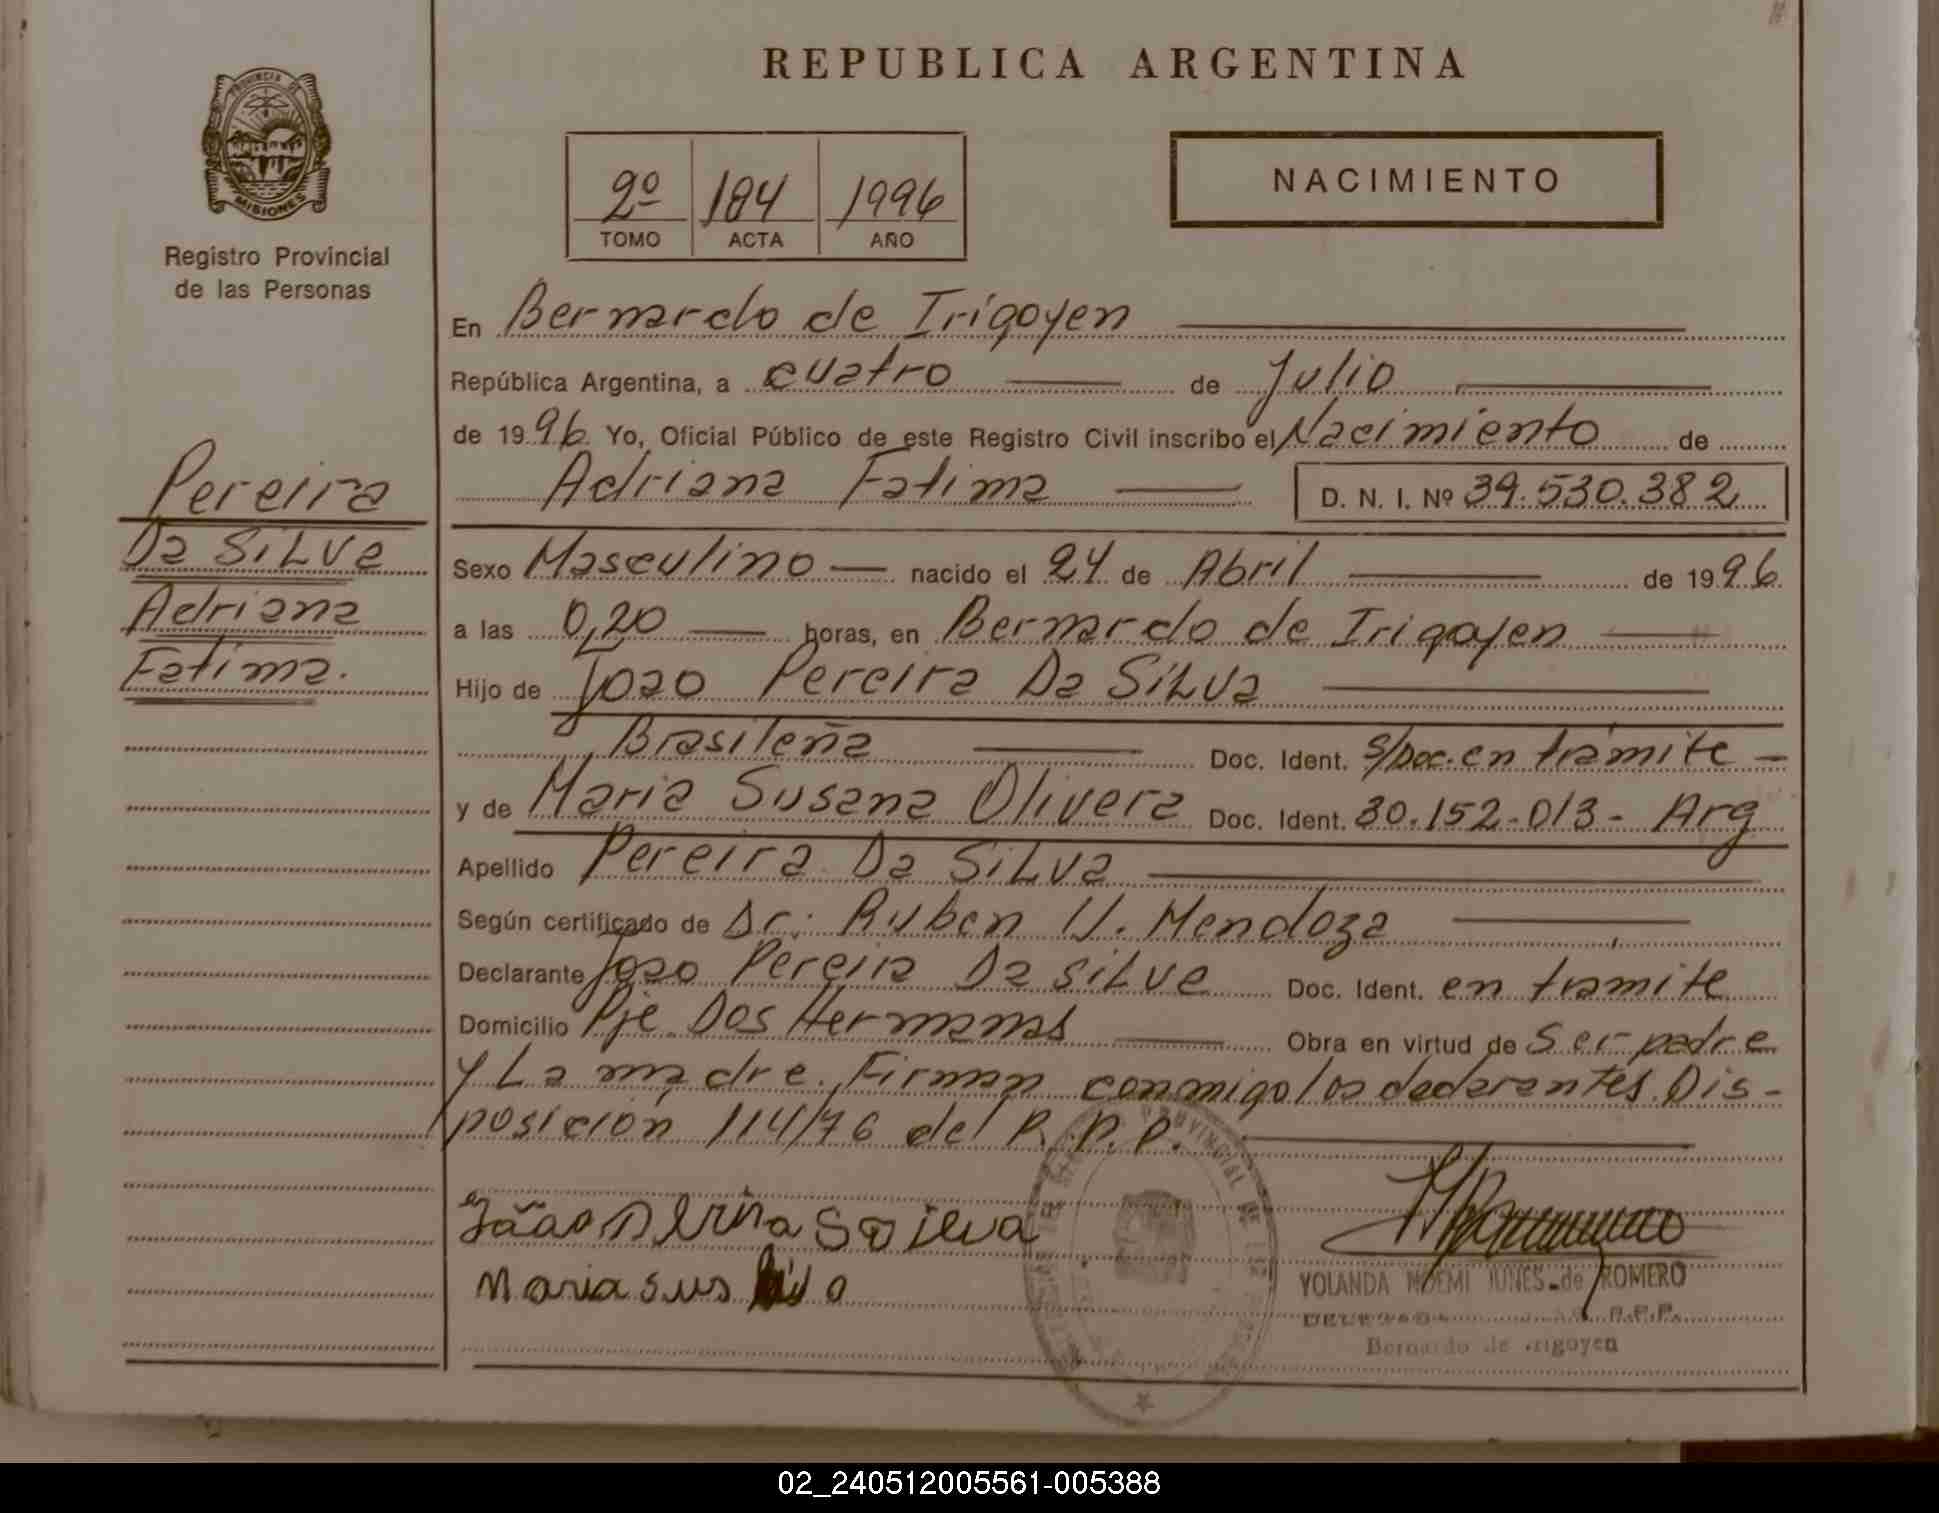 REPUBLICA ARGENTINA
PROVINCIA DE
MISIONES
Registro Provincial
de las Personas
2º 184 1996
TOMO ACTA AÑO
NACIMIENTO
En Bernardo de Irigoyen
República Argentina, a cuatro de Julio
de 1996 Yo, Oficial Público de este Registro Civil inscribo el Nacimiento de
Adriana Fatima D. N. I. Nº 39.530.382
Pereira
Da SiLva
Adriana
Fatima.
Sexo Masculino nacido el 24 de Abril de 1996
a las 0,20 horas, en Bernardo de Irigoyen
Hijo de Joao Pereira Da SiLva
Brasileña Doc. Ident. S/Doc. en trámite
y de Maria Susana Olivera Doc. Ident. 30.152.013- Arg
Apellido Pereira Da SiLva
Según certificado de Dr. Ruben U. Mendoza
Declarante Joao Pereira Da SiLva Doc. Ident. en trámite
Domicilio Pje Dos Hermanas Obra en virtud de Ser padre
y La madre. Firman conmigo los declarantes. Dis-
posición 114/76 del R.P.P.
PROVINCIAL DE
Maria sus
YOLANDA NOEMI de ROMERO
R.P.P.
Bernardo de Irigoyen
02_240512005561-005388